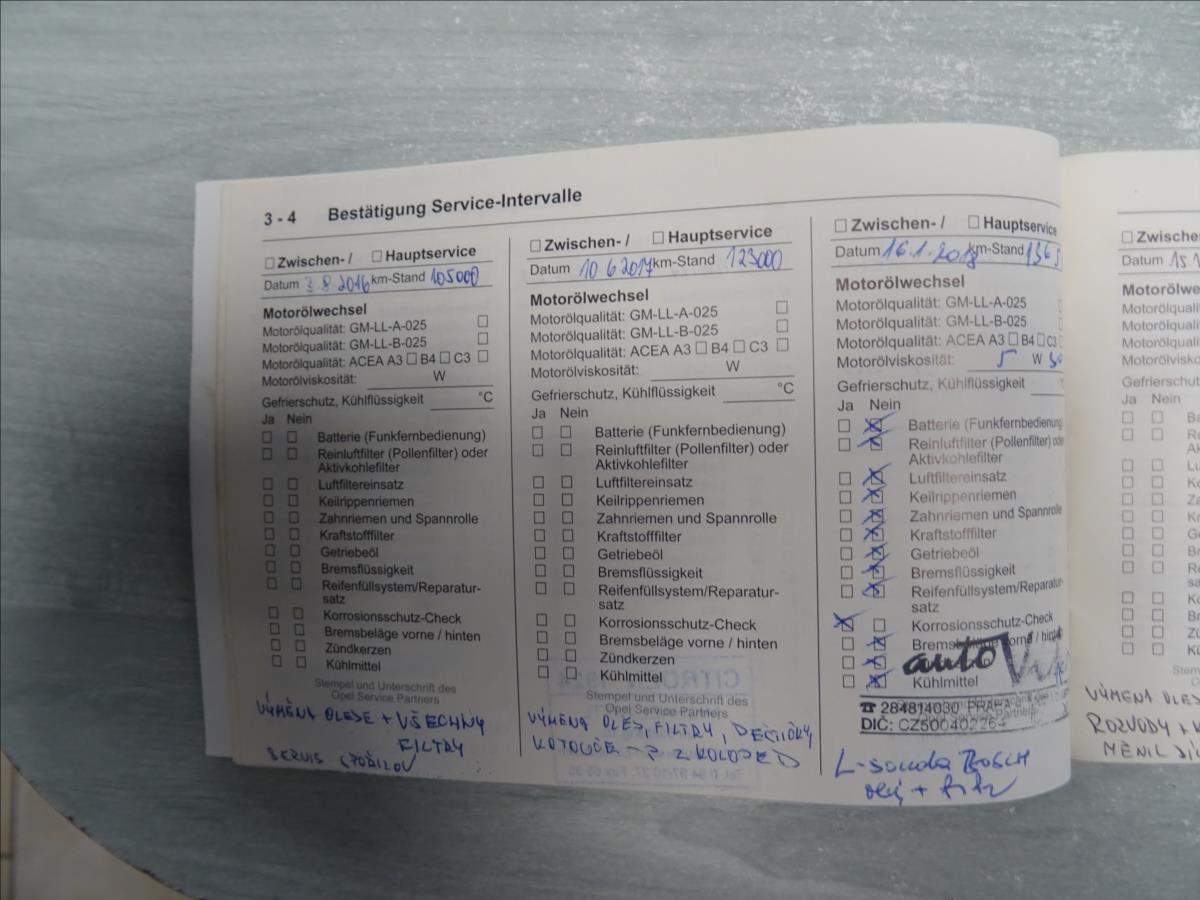 3 - 4 Bestätigung Service-Intervalle
☐ Zwischen- / ☐ Hauptservice
Datum 3 8 2016 km-Stand 105000
Motorölwechsel
Motorölqualität: GM-LL-A-025 ☐
Motorölqualität: GM-LL-B-025 ☐
Motorölqualität: ACEA A3 ☐ B4 ☐ C3 ☐
Motorölviskosität: W
Gefrierschutz, Kühlflüssigkeit °C
Ja Nein
☐ ☐ Batterie (Funkfernbedienung)
☐ ☐ Reinluftfilter (Pollenfilter) oder
Aktivkohlefilter
☐ ☐ Luftfiltereinsatz
☐ ☐ Keilrippenriemen
☐ ☐ Zahnriemen und Spannrolle
☐ ☐ Kraftstofffilter
☐ ☐ Getriebeöl
☐ ☐ Bremsflüssigkeit
☐ ☐ Reifenfüllsystem/Reparatur-
satz
☐ ☐ Korrosionsschutz-Check
☐ ☐ Bremsbeläge vorne / hinten
☐ ☐ Zündkerzen
☐ ☐ Kühlmittel
Stempel und Unterschrift des
Opel Service Partners
VÝMĚNA OLEJE + VŠECHNY
FILTRY
SERVIS
☐ Zwischen- / ☐ Hauptservice
Datum 10 6 2017 km-Stand 123000
Motorölwechsel
Motorölqualität: GM-LL-A-025 ☐
Motorölqualität: GM-LL-B-025 ☐
Motorölqualität: ACEA A3 ☐ B4 ☐ C3 ☐
Motorölviskosität: W
Gefrierschutz, Kühlflüssigkeit °C
Ja Nein
☐ ☐ Batterie (Funkfernbedienung)
☐ ☐ Reinluftfilter (Pollenfilter) oder
Aktivkohlefilter
☐ ☐ Luftfiltereinsatz
☐ ☐ Keilrippenriemen
☐ ☐ Zahnriemen und Spannrolle
☐ ☐ Kraftstofffilter
☐ ☐ Getriebeöl
☐ ☐ Bremsflüssigkeit
☐ ☐ Reifenfüllsystem/Reparatur-
satz
☐ ☐ Korrosionsschutz-Check
☐ ☐ Bremsbeläge vorne / hinten
☐ ☐ Zündkerzen
☐ ☐ Kühlmittel
Stempel und Unterschrift des
Opel Service Partners
VÝMĚNA OLEJ, FILTRY, DESTIČKY,
KOTOUČE - P. Z KOLODED
☐ Zwischen- / ☐ Hauptservice
Datum 16.1.2018 km-Stand 136
Motorölwechsel
Motorölqualität: GM-LL-A-025
Motorölqualität: GM-LL-B-025
Motorölqualität: ACEA A3 ☐ B4 ☐ C3
Motorölviskosität: 5 W 30
Gefrierschutz, Kühlflüssigkeit
Ja Nein
☐ ☒ Batterie (Funkfernbedienung
☐ ☒ Reinluftfilter (Pollenfilter) oder
Aktivkohlefilter
☐ ☒ Luftfiltereinsatz
☐ ☒ Keilrippenriemen
☐ ☒ Zahnriemen und Spannrolle
☐ ☒ Kraftstofffilter
☐ ☒ Getriebeöl
☐ ☒ Bremsflüssigkeit
☐ ☒ Reifenfüllsystem/Reparatur-
satz
☒ ☐ Korrosionsschutz-Check
☐ ☒ Bremsbeläge vorne / hint
☐ ☒
☐ ☒ Kühlmittel
auto
☎ 284814030 PRAHA
DIČ: CZ500402264
L-sonda BOSCH
olej + filtr
☐ Zwischen-
Datum 15.1
Motorölwe
Ja Nein
VÝMĚNA OLE
ROZVODY +
MĚNIL